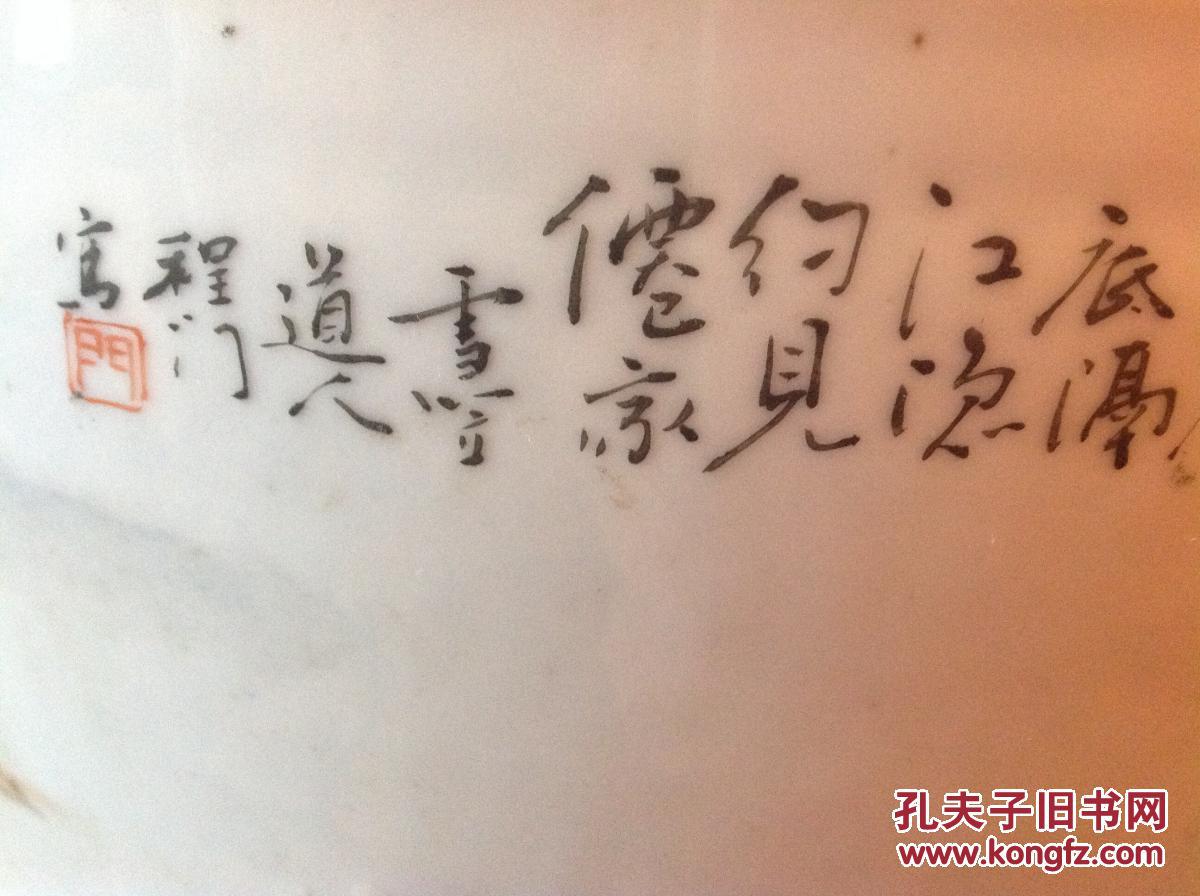 底隔
江隐
約見
僊家
雪笠
道人
程门
寫
門
孔夫子旧书网
www.kongfz.com